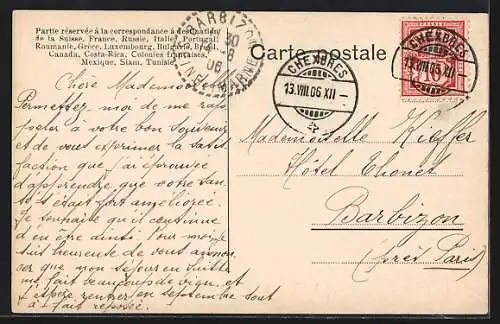 Partie réservée à la correspondance à destination
de la Suisse, France, Russie, Italie, Portugal,
Roumanie, Grèce, Luxembourg, Bulgarie, Brésil,
Canada, Costa-Rica, Colonies françaises,
Mexique, Siam, Tunisie.
BARBIZON
30
8
06
Carte postale
CHEXBRES
13.VIII.06.XII
CHEXBRES
13.VIII.06.XII
10
Chère Mademoiselle
Permettez moi de me rap-
peler à votre bon souvenir
et de vous exprimer la satis
faction que j'ai éprouvée
d'apprendre que votre san
té s'était fort améliorée.
Je souhaite qu'il continue
d'en être ainsi. Pour moi je
suis heureuse de vous annon
cer que mon séjour en Suisse
me fait beaucoup de bien et
j'espère rentrer en septembre tout
à fait reposée.
Mademoiselle Kieffer
Hôtel Thonet
Barbizon
(près Paris)